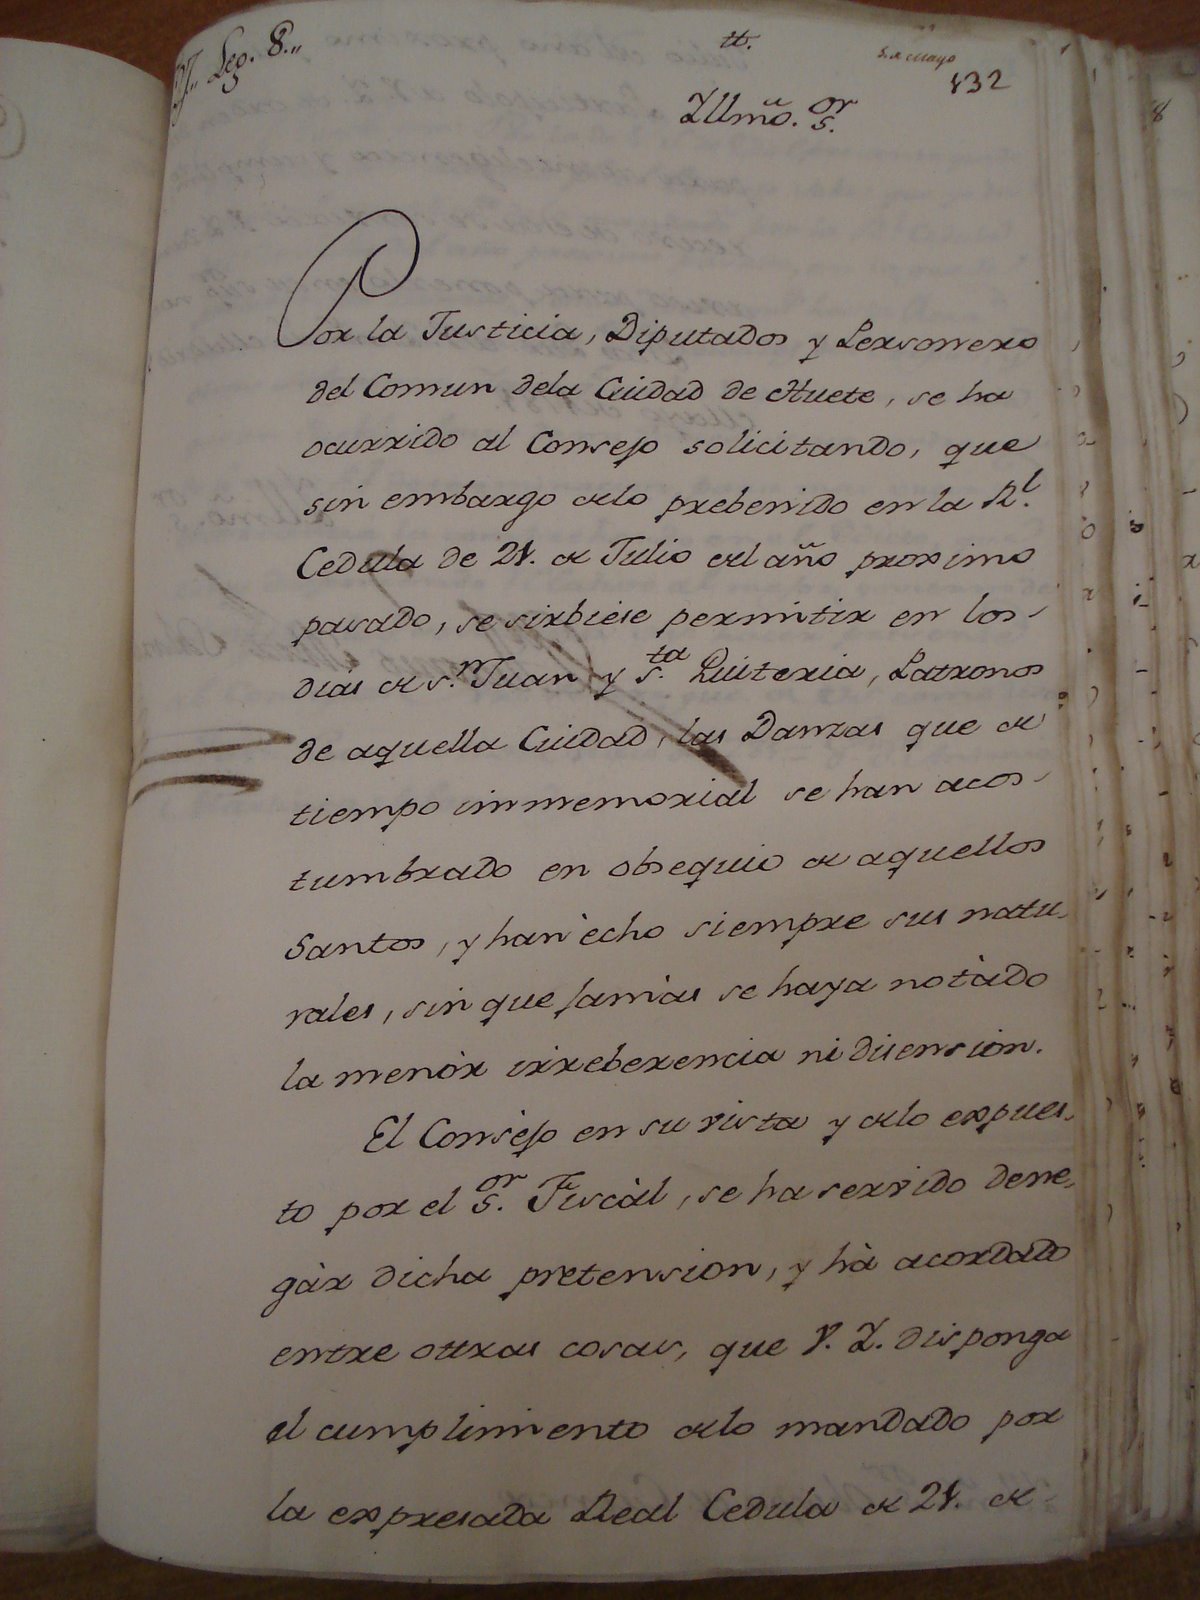 Leg. 8.,,
tt.
5. de Mayo
132
Yllmõ. S.or
Por la Justicia, Diputados y Personero
del Comun dela Ciudad de Huete, se ha
ocurrido al Consejo solicitando, que
sin embargo delo prebenido en la Rl.
Cedula de 21. de Julio del año proximo
pasado, se sirbiese permitir en los
dias de S.n Juan y S.ta Quiteria, Patronos
de aquella Ciudad, las Danzas que de
tiempo immemorial se han acos-
tumbrado en obsequio de aquellos
Santos, y han echo siempre sus natu-
rales, sin que jamàs se haya notàdo
la menòr irreberencia ni disension.
El Consejo en su vista y delo expues-
to por el S.or Fiscàl, se ha servido dene-
gàr dicha pretension, y hà acordado
entre otras cosas, que V. Y. disponga
el cumplimiento delo mandado por
la expresada Real Cedula de 21. de